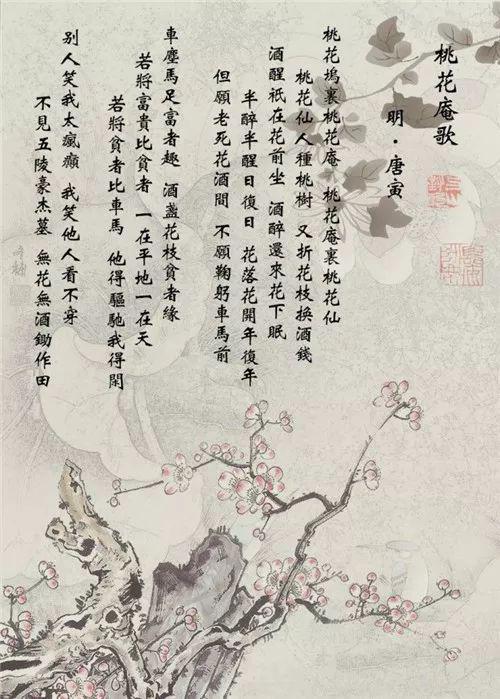 桃花庵歌
明·唐寅
桃花塢裏桃花庵 桃花庵裏桃花仙
桃花仙人種桃樹 又折花枝換酒錢
酒醒祇在花前坐 酒醉還來花下眠
半醉半醒日復日 花落花開年復年
但願老死花酒間 不願鞠躬車馬前
車塵馬足富者趣 酒盞花枝貧者緣
若將富貴比貧者 一在平地一在天
若將貧者比車馬 他得驅馳我得閑
別人笑我太瘋癲 我笑他人看不穿
不見五陵豪杰墓 無花無酒鋤作田